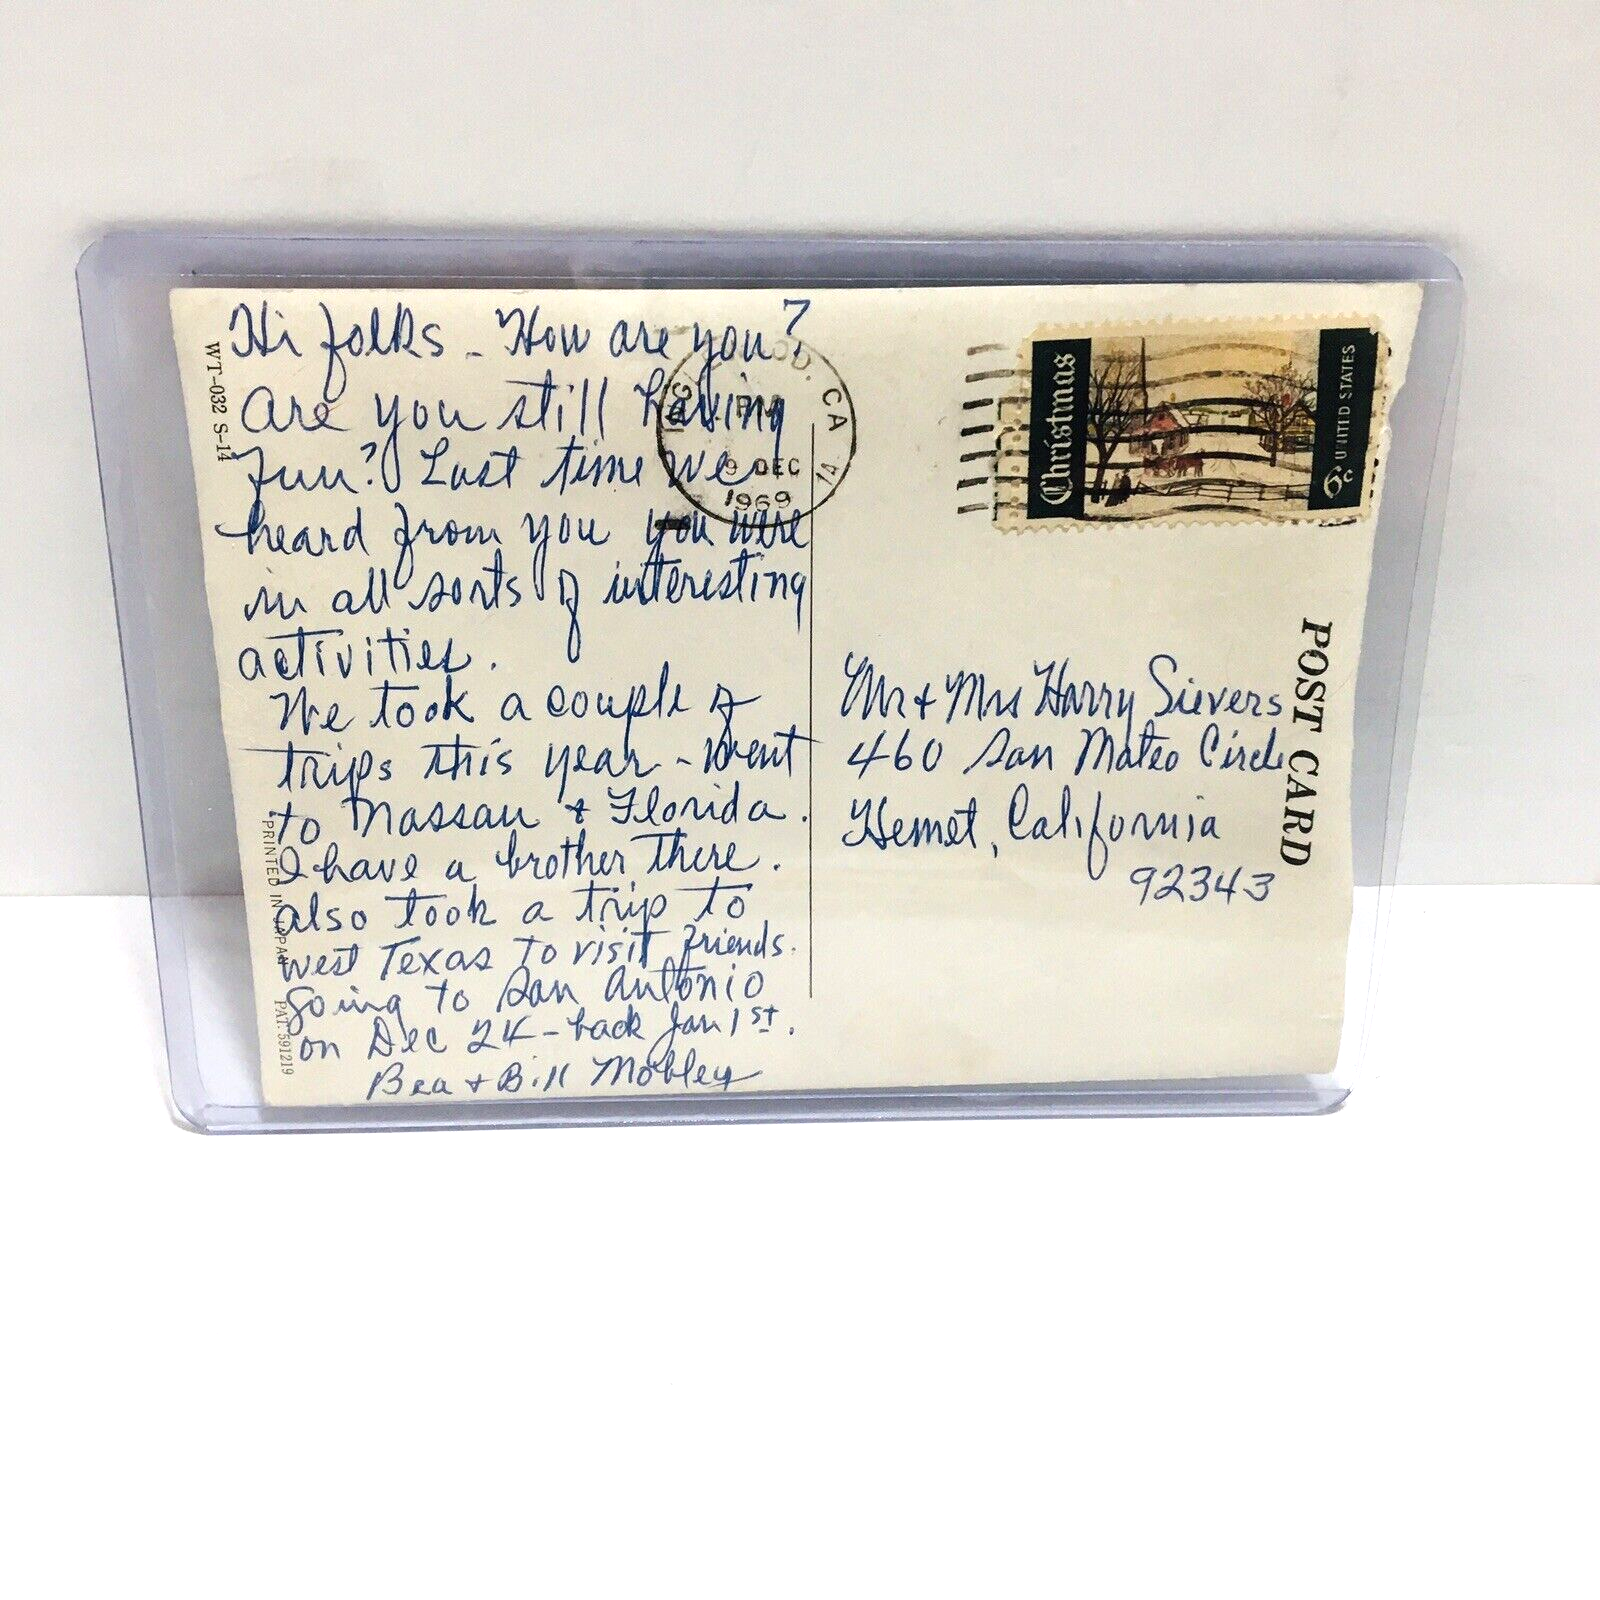 Hi folks - How are you?
Are you still having
fun? Last time we
heard from you you were
in all sorts of interesting
activities.
We took a couple of
trips this year - went
to Nassau & Florida.
I have a brother there.
also took a trip to
west Texas to visit friends.
Going to San Antonio
on Dec 24 - back Jan 1st.
Bea + Bill Mobley
WT-032 S-14
PRINTED IN JAPAN
PAT. 591219
OD, CA
PM
9 DEC
1969
Christmas
6c UNITED STATES
POST CARD
Mr & Mrs Harry Sievers
460 San Mateo Circle
Hemet, California
92343